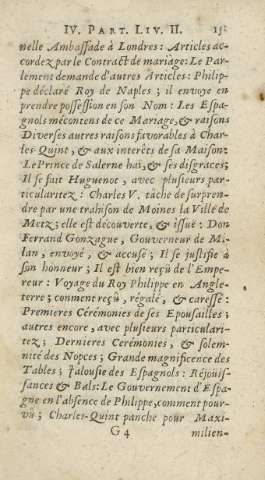 IV. PART. LIV. II. 151
nelle Ambaſſade à Londres: Articles ac-
cordez par le Contract de mariage: Le Par-
lement demande d'autres Articles: Philip-
pe déclaré Roy de Naples; il envoye en
prendre poſſeſſion en ſon Nom: Les Eſpa-
gnols mécontens de ce Mariage, & raiſons
Diverſes autres raiſons favorables à Char-
les-Quint, & aux interêts de ſa Maiſon:
Le Prince de Salerne hai, & ſes diſgraces;
Il ſe fait Huguenot, avec pluſieurs par-
ticularitez: Charles V. tâche de ſurpren-
dre par une trahiſon de Moines la Ville de
Metz; elle eſt découverte, & iſſuë: Don
Ferrand Gonzague, Gouverneur de Mi-
lan, envoyé, & accuſé; Il ſe juſtifie à
ſon honneur; Il eſt bien reçû de l'Empe-
reur: Voyage du Roy Philippe en Angle-
terre; comment reçû, régalé, & careſſé:
Premieres Cérémonies de ſes Epouſailles;
autres encore, avec pluſieurs particulari-
tez; Dernieres Cerémonies, & ſolem-
nité des Nopces; Grande magnificence des
Tables; Jalouſie des Eſpagnols: Réjouïſ-
ſances & Bals: Le Gouvernement d'Eſpa-
gne en l'abſence de Philippe, comment pour-
vû; Charles-Quint panche pour Maxi-
G 4 milien-